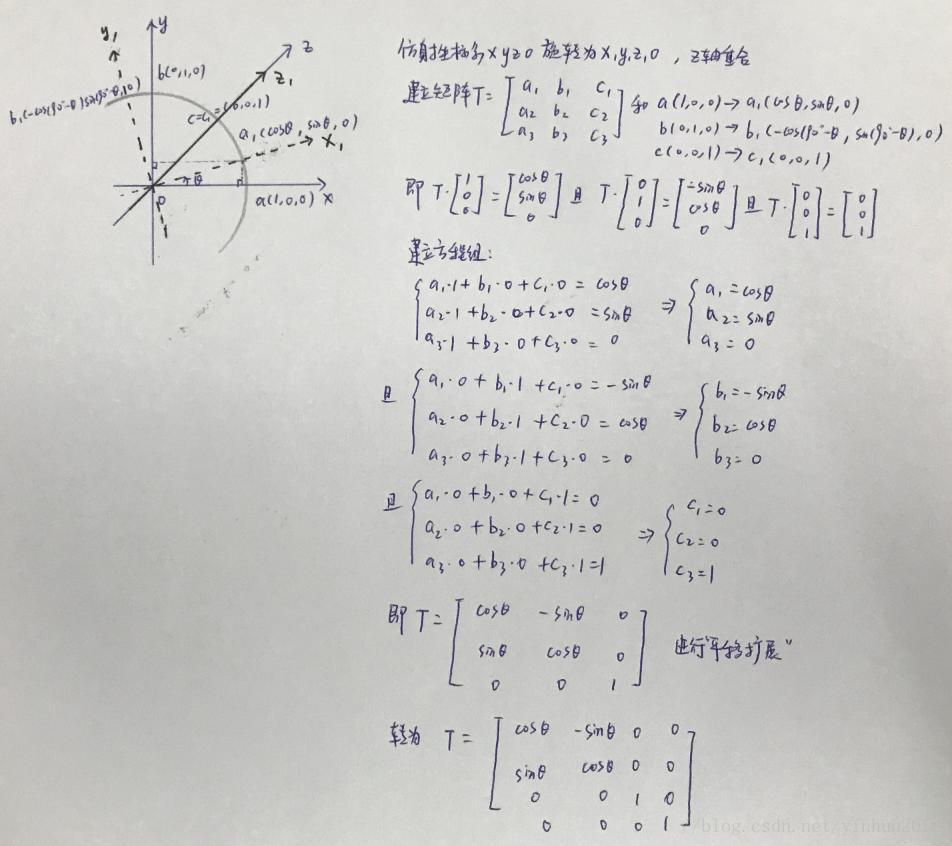 y₁
y
z
z₁
b(0,1,0)
b₁(-cos(90°-θ)sin(90°-θ),0)
c=c₁=(0,0,1)
a₁(cosθ, sinθ, 0)
x₁
θ
o
a(1,0,0) x
仿射坐标系xyz0 旋转为x₁y₁z₁0 , z轴重合
建立矩阵T= [a₁ b₁ c₁
a₂ b₂ c₂
a₃ b₃ c₃] 和 a(1,0,0)→a₁(cosθ,sinθ,0)
b(0,1,0)→b₁(-cos(90°-θ, sin(90°-θ),0)
c(0,0,1)→c₁(0,0,1)
即 T·[1 0 0]=[cosθ sinθ 0] 且 T·[0 1 0]=[-sinθ cosθ 0] 且 T·[0 0 1]=[0 0 1]
建立方程组:
a₁·1+b₁·0+c₁·0=cosθ ⇒ a₁=cosθ
a₂·1+b₂·0+c₂·0=sinθ a₂=sinθ
a₃·1+b₃·0+c₃·0=0 a₃=0
且 a₁·0+b₁·1+c₁·0=-sinθ ⇒ b₁=-sinθ
a₂·0+b₂·1+c₂·0=cosθ b₂=cosθ
a₃·0+b₃·1+c₃·0=0 b₃=0
且 a₁·0+b₁·0+c₁·1=0 ⇒ c₁=0
a₂·0+b₂·0+c₂·1=0 c₂=0
a₃·0+b₃·0+c₃·1=1 c₃=1
即 T= [cosθ -sinθ 0
sinθ cosθ 0 进行"平移扩展"
0 0 1]
转为 T= [cosθ -sinθ 0 0
sinθ cosθ 0 0
0 0 1 0
0 0 0 1]
//blog.csdn.net/yinhun2012